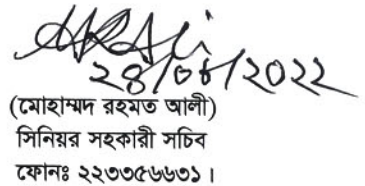 28/08/2022
(মোহাম্মদ রহমত আলী)
সিনিয়র সহকারী সচিব
ফোনঃ ২২৩৩৫৬৬৩১।